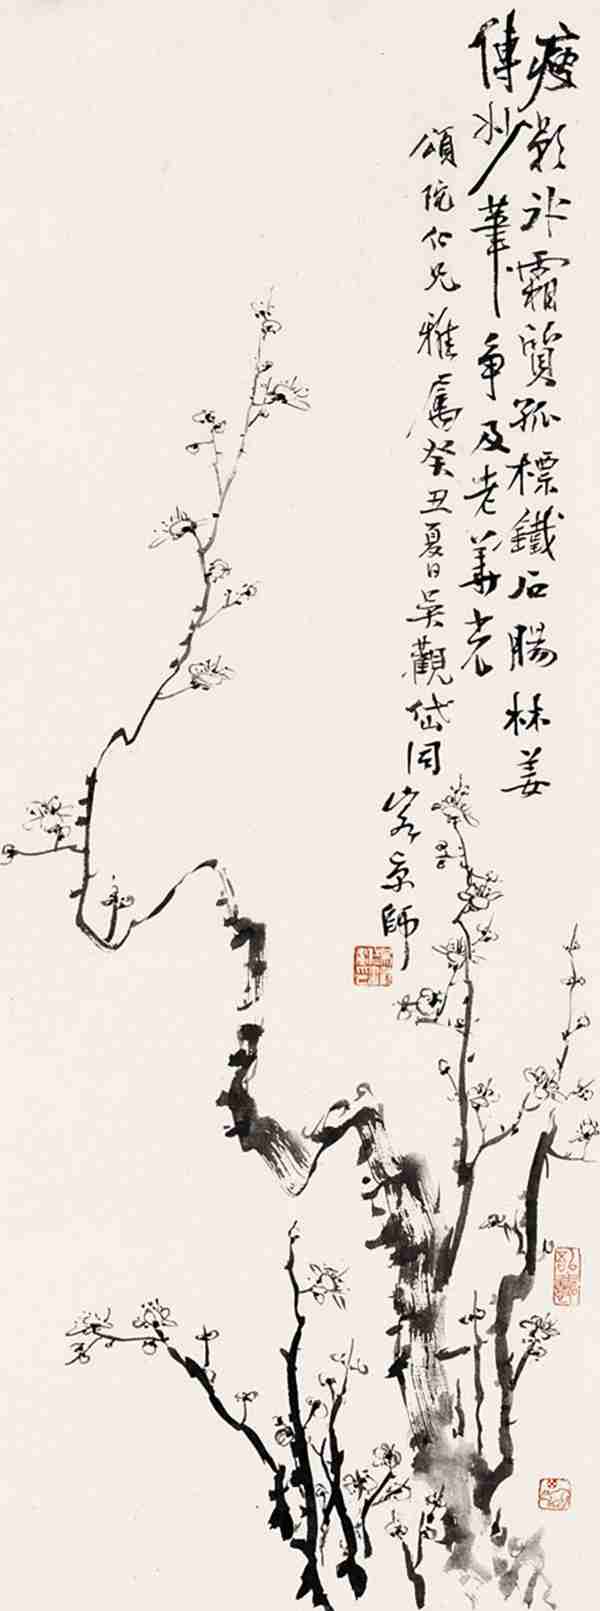 瘦影冰霜質孤標鐵石腸林姜
傳妙筆爭及老華光
頌阮仁兄雅屬癸丑夏日吳觀岱同
客京師